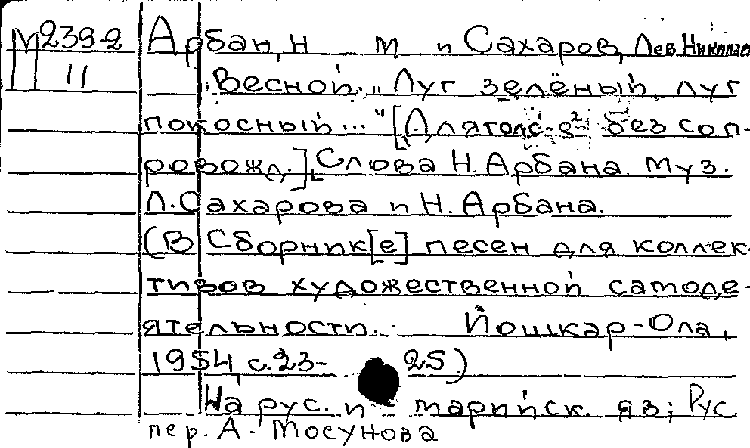 М239-2
11
Арбан, Н М и Сахаров, Лев Никола
"Весной. "Луг зелёный луг
покосный..." [Для голс. без соп-
ровожд.] Слова Н. Арбана. Муз.
Л. Сахарова и Н. Арбана.
(В Сборник[е] песен для коллек-
тивов художественной самоде-
ятельности. Йошкар-Ола,
1954 с. 23- 25)
На рус. и марийск. яз; Рус
пер. А. Мосунова